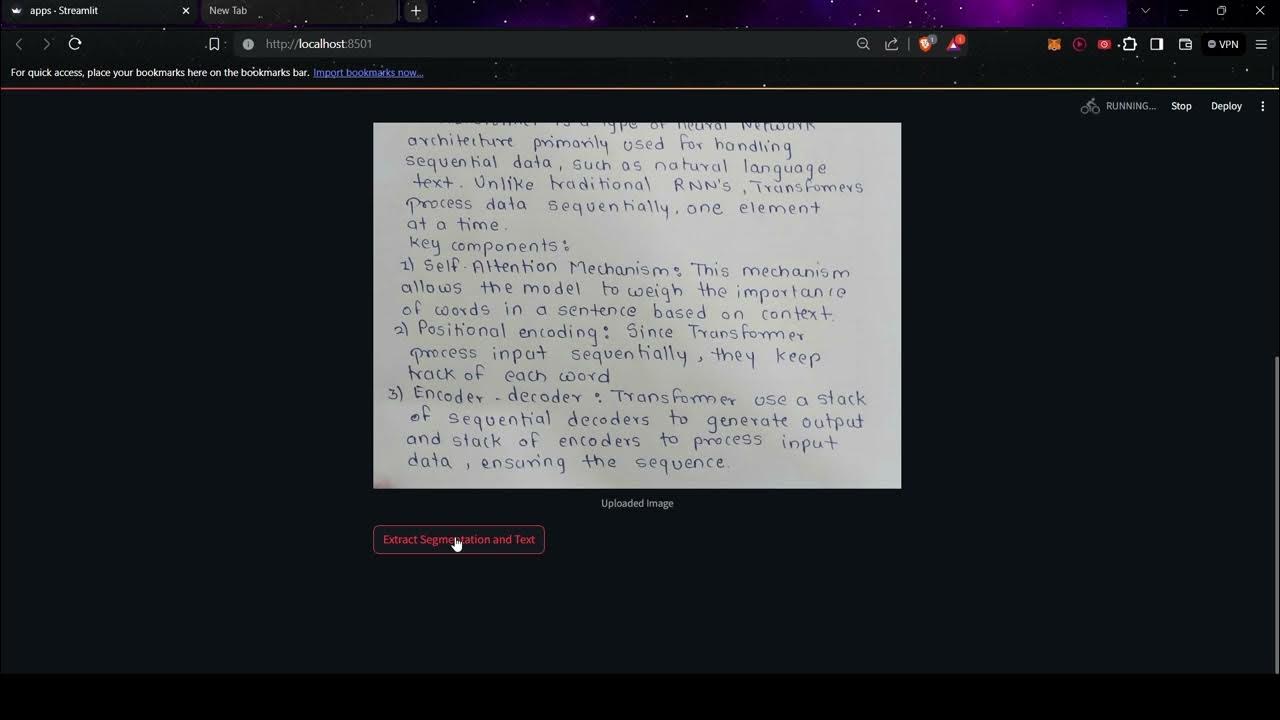 apps - Streamlit
New Tab
http://localhost:8501
VPN
For quick access, place your bookmarks here on the bookmarks bar. Import bookmarks now...
RUNNING...
Stop
Deploy
is a type of neural Network
architecture primarily used for handling
sequential data, such as natural language
text. Unlike traditional RNN's, Transfomers
process data sequentially, one element
at a time.
Key components:
1) Self-Attention Mechanism: This mechanism
allows the model to weigh the importance
of words in a sentence based on context.
2) Positional encoding: Since Transformer
process input sequentially, they keep
track of each word
3) Encoder-decoder: Transformer use a stack
of sequential decoders to generate output
and stack of encoders to process input
data, ensuring the sequence.
Uploaded Image
Extract Segmentation and Text